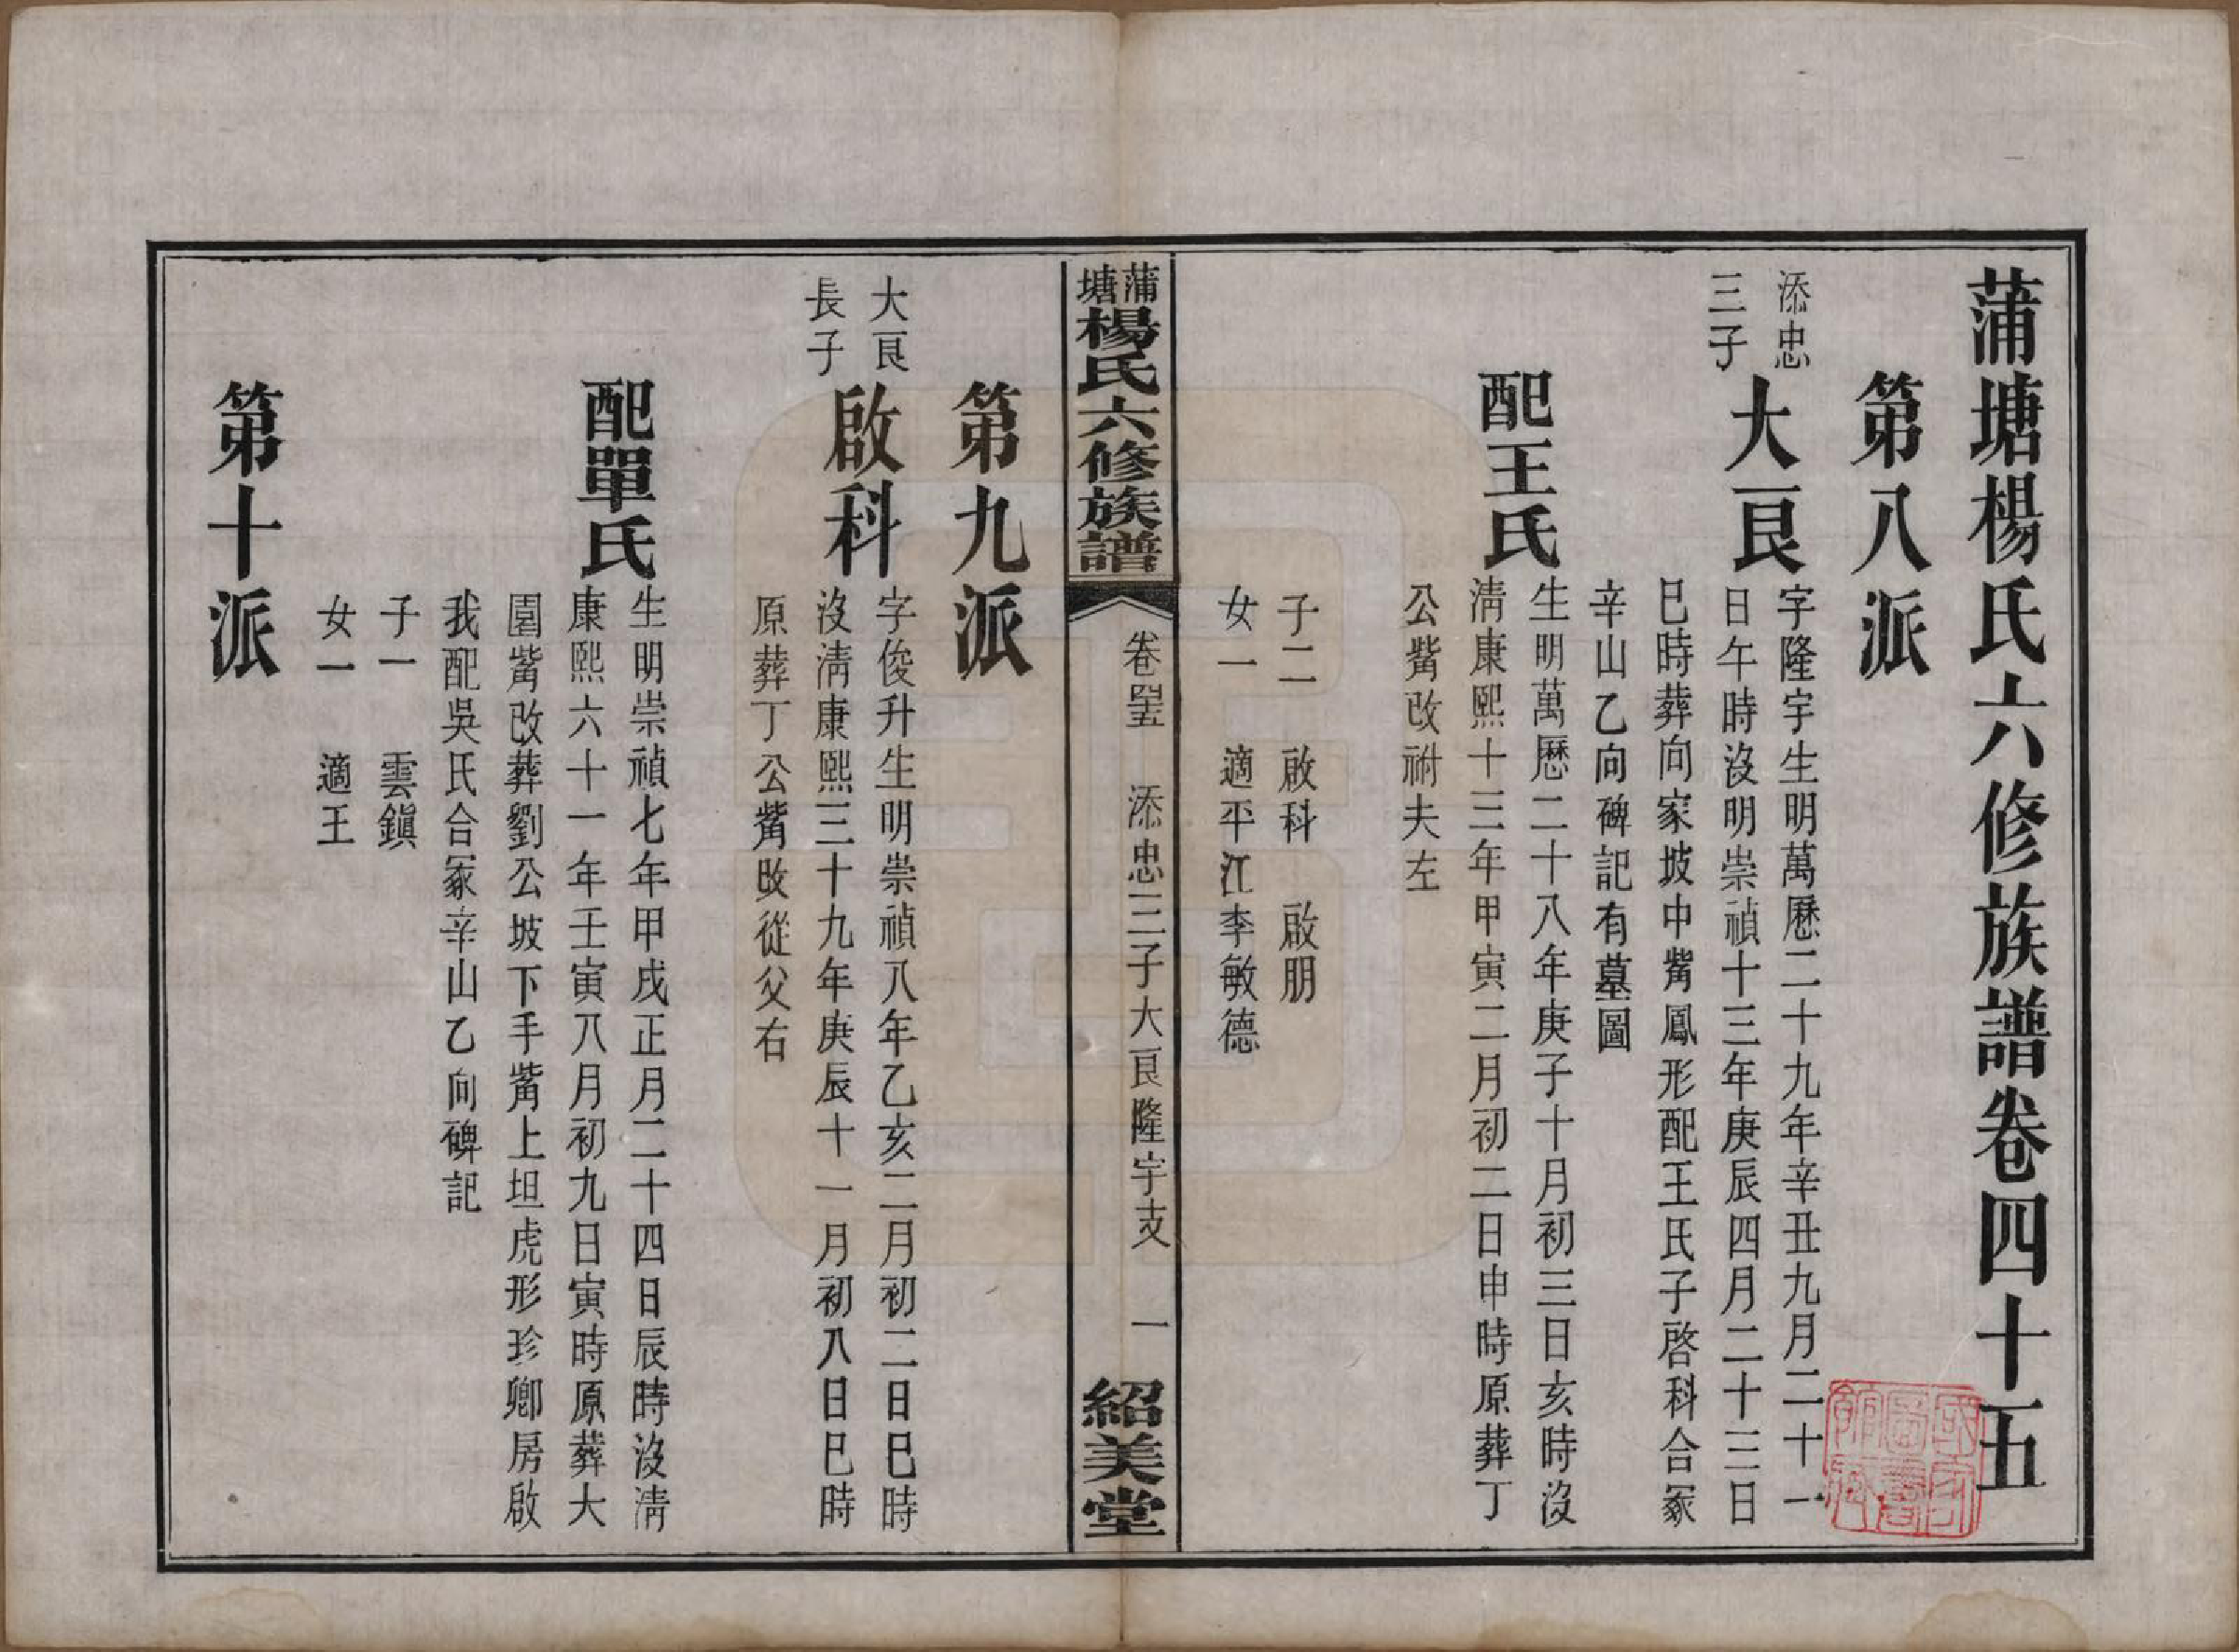 蒲塘楊氏六修族譜卷四十五
第八派
添忠
三子
大良
字隆宇生明萬曆二十九年辛丑九月二十一
日午時沒明崇禎十三年庚辰四月二十三日
巳時葬向家坡中觜鳳形配王氏子啓科合冢
辛山乙向碑記有墓圖
配王氏
生明萬曆二十八年庚子十月初三日亥時沒
淸康熙十三年甲寅二月初二日申時原葬丁
公觜改祔夫左
子二 啟科 啟朋
女一 適平江李敏德
蒲塘楊氏六修族譜 卷四十五 添忠三子大良隆宇支 一 紹美堂
第九派
大良
長子
啟科
字俊升生明崇禎八年乙亥二月初二日巳時
沒淸康熙三十九年庚辰十一月初八日巳時
原葬丁公觜改從父右
配單氏
生明崇禎七年甲戌正月二十四日辰時沒淸
康熙六十一年壬寅八月初九日寅時原葬大
園觜改葬劉公坡下手觜上坦虎形珍卿房啟
我配吳氏合冢辛山乙向碑記
子一 雲鎭
女一 適王
第十派